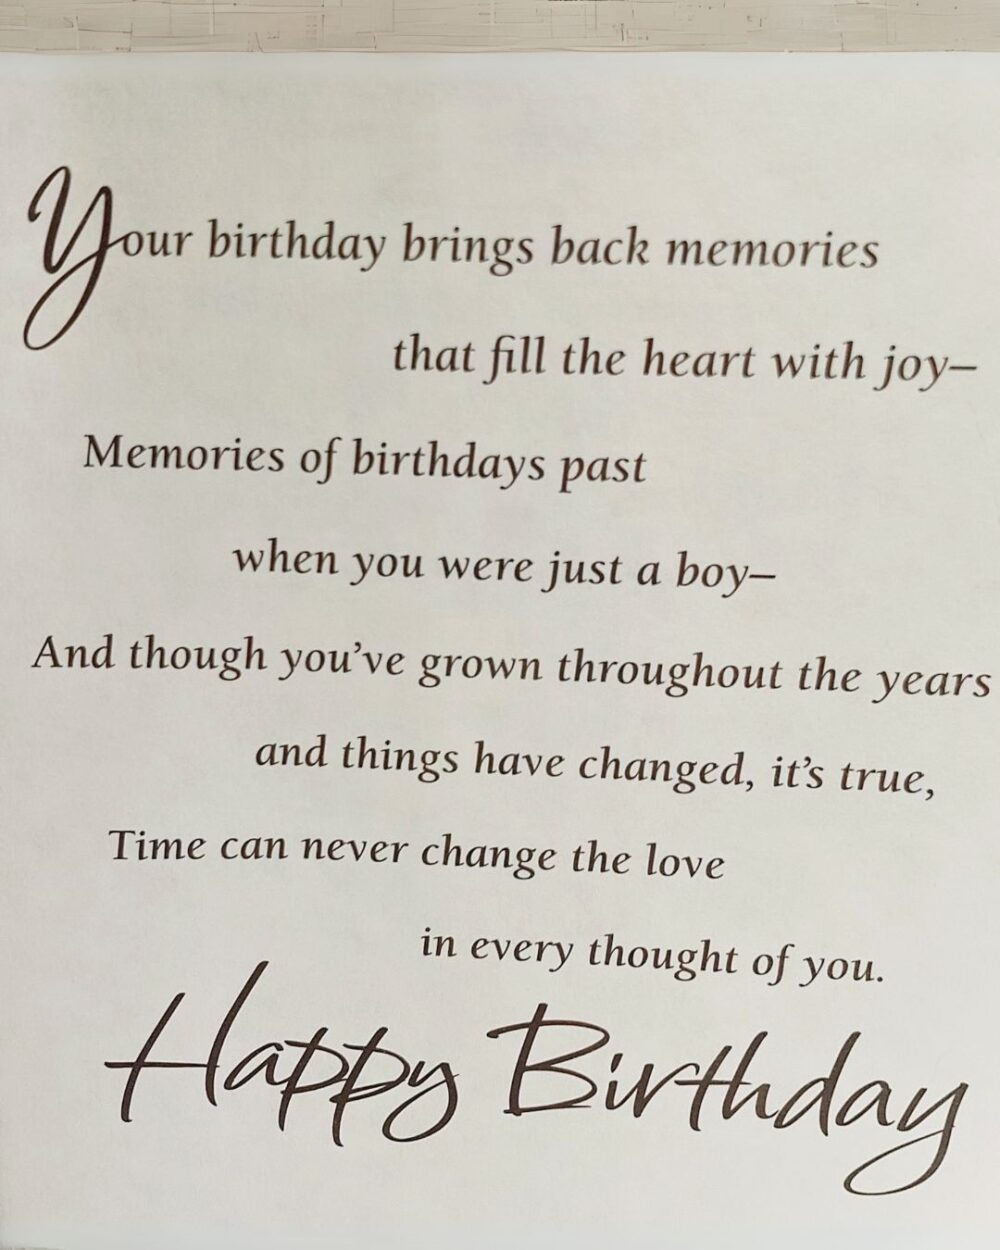 Your birthday brings back memories
that fill the heart with joy–
Memories of birthdays past
when you were just a boy–
And though you’ve grown throughout the years
and things have changed, it’s true,
Time can never change the love
in every thought of you.
Happy Birthday